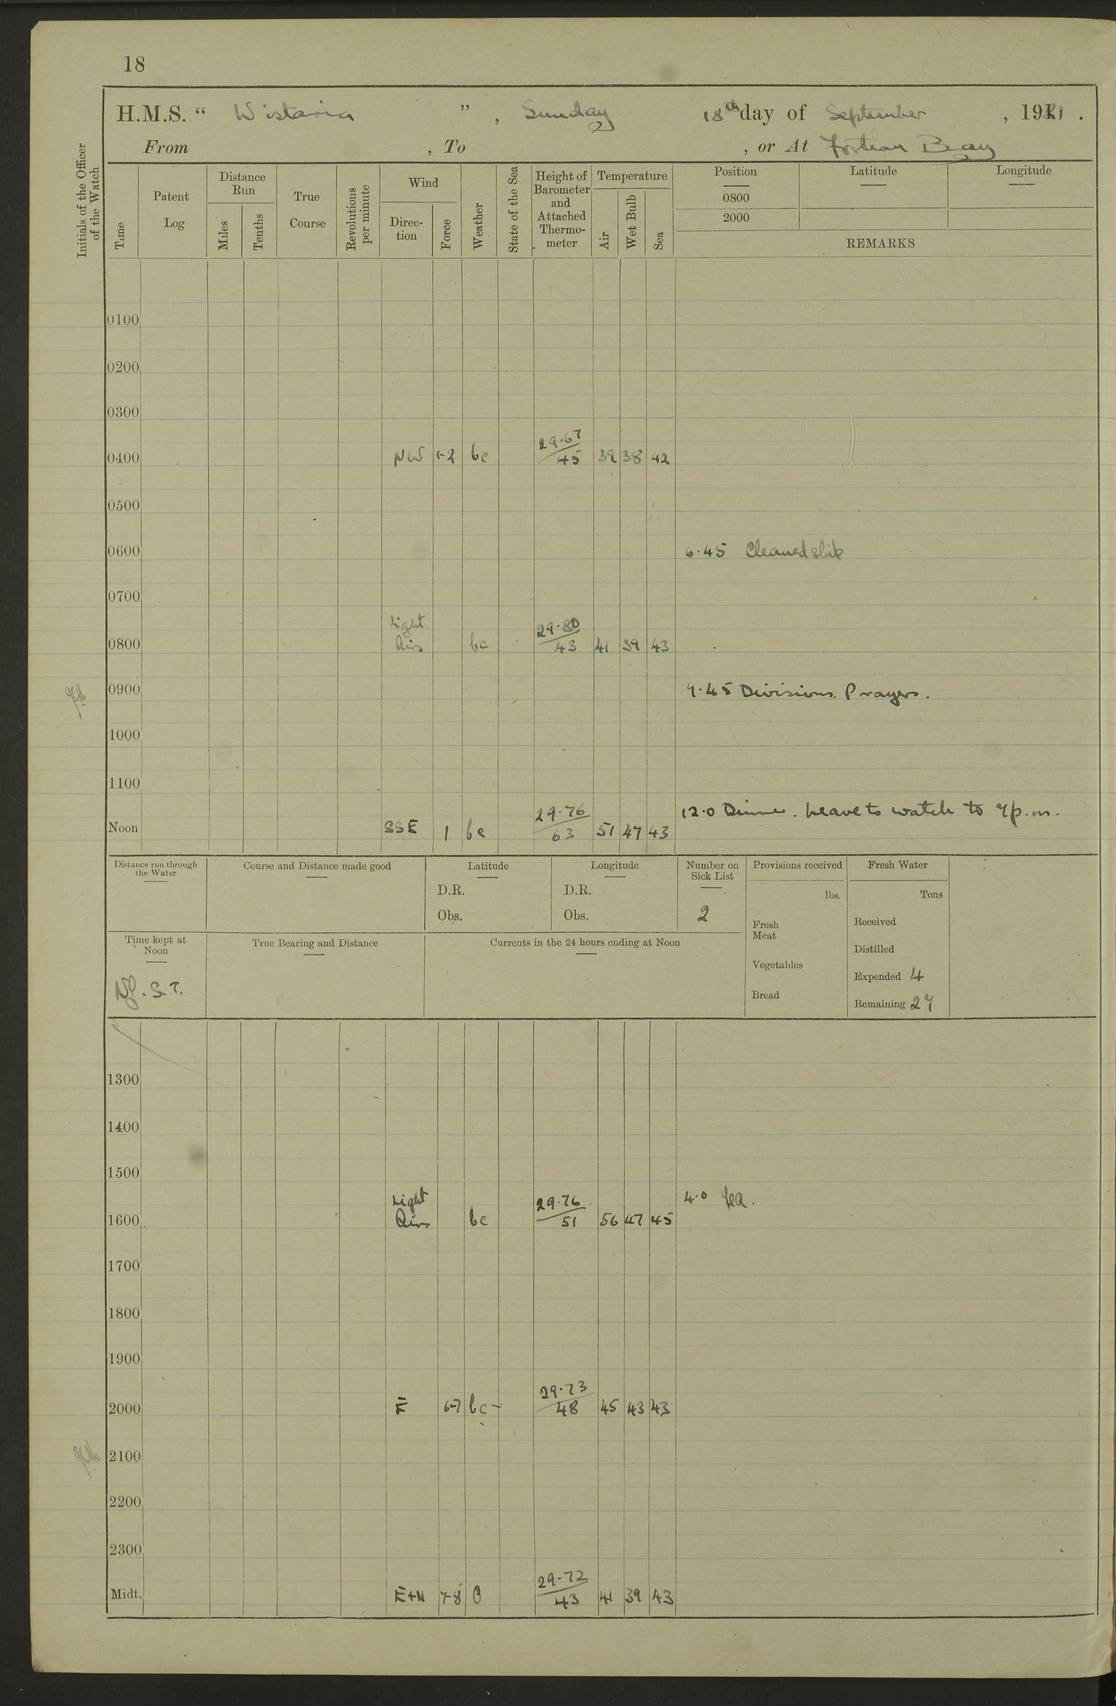 18
H.M.S. “ Wistaria ”, Sunday 18th day of September, 1921.
From , To , or At Forteau Bay
Initials of the Officer of the Watch
Time
Patent Log
Distance Run
Miles
Tenths
True Course
Revolutions per minute
Wind
Direction
Force
Weather
State of the Sea
Height of Barometer and Attached Thermometer
Temperature
Air
Wet Bulb
Sea
Position
Latitude
Longitude
0800
2000
REMARKS
0100
0200
0300
0400 NW 1-2 bc 29·67/45 39 38 42
0500
0600 6·45 Cleaned ship
0700
0800 Light Airs bc 29·80/43 41 39 43
0900 9·45 Divisions. Prayers.
1000
1100
Noon SSE 1 bc 29·76/63 51 47 43 12·0 Dinner. Leave to watch to 7p.m.
Distance run through the Water
Course and Distance made good
Latitude
D.R.
Obs.
Longitude
D.R.
Obs.
Number on Sick List
2
Provisions received
lbs.
Fresh Meat
Vegetables
Bread
Fresh Water
Tons
Received
Distilled
Expended 4
Remaining 27
Time kept at Noon
Nf. S.T.
True Bearing and Distance
Currents in the 24 hours ending at Noon
1300
1400
1500
1600 Light Airs bc 29·76/51 56 47 45 4·0 Tea.
1700
1800
1900
2000 E 6-7 bc- 29·73/48 45 43 43
2100
2200
2300
Midt. E+N 7-8 O 29-72/43 41 39 43